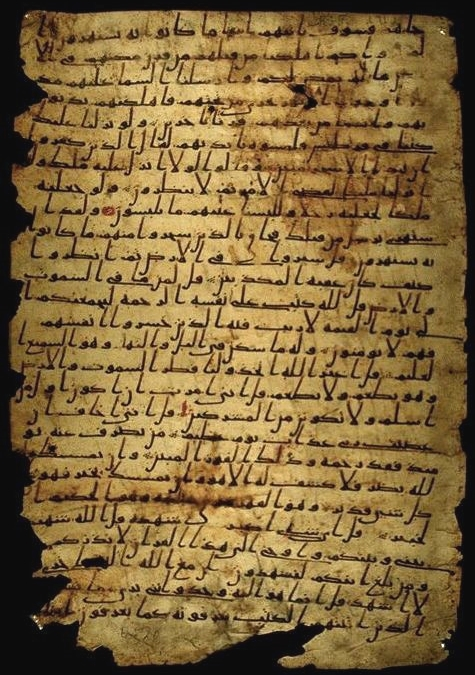 جاهم فسوف ياتيهم انبوا ما كانوا به يستهزون ا
لم يروا كم اهلكنا من قبلهم من قرن مكنهم في الا
رض ما لم نمكن لكم وارسلنا السما عليهم مد
رارا وجعلنا تجري من تحتهم فاهلكنهم بذنو
بهم وانشانا من بعدهم قرنا اخرين ولو نزلنا عليك
كتبا في قرطاس فلمسوه بايديهم لقال الذين كفروا
ان هذا الا سحر مبين وقالوا لولا انزل عليه ملك ولو
انزلنا ملكا لقضي الامر ثم لا ينظرون ولو جعلنه
ملكا لجعلنه رجلا وللبسنا عليهم ما يلبسون ولقد ا
ستهزي برسل من قبلك فحاق بالذين سخروا منهم ما كانوا
به يستهزون قل سيروا في الارض ثم انظروا
كيف كان عقبة المكذبين قل لمن ما في السموت
والارض قل لله كتب على نفسه الرحمة ليجمعنكم ا
لى يوم القيمة لا ريب فيه الذين خسروا انفسهم
فهم لا يومنون وله ما سكن في اليل والنهر وهو السميع ا
لعليم قل اغير الله اتخذ وليا فطر السموت والارض
وهو يطعم ولا يطعم قل اني امرت ان اكون اول من
اسلم ولا تكونن من المشركين قل اني اخاف ان
عصيت ربي عذاب يوم عظيم من يصرف عنه يو
مئذ فقد رحمه وذلك الفوز المبين وان يمسسك ا
لله بضر فلا كشف له الا هو وان يمسسك بخير فهو
كل شي قدير وهو القاهر وهو الحكيم ا
لخبير قل اي شي اكبر شهدة قل الله شهيد
بيني وبينكم واوحي الي هذا القران لانذركم
ومن بلغ ائنكم لتشهدون ان مع الله الهة اخرى
لا اشهد قل انما هو اله وحد وانني بري مما
الذين اتينهم الكتب يعرفونه كما يعرفون